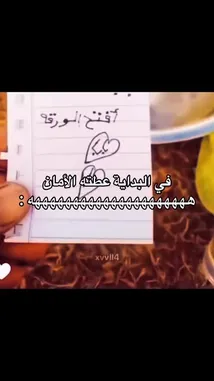 أفتح الورقة
في البداية عطته الأمان
هههههههههههههههههههههه :
xvvll4